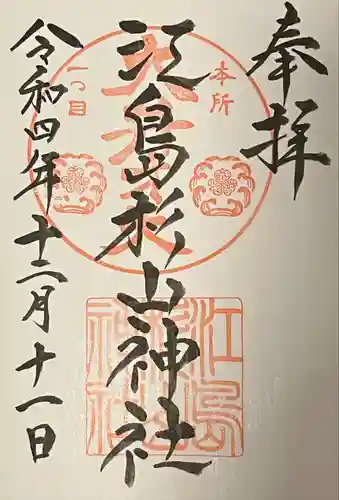 奉拝
本所
一つ目
江島杉山神社
江島杉山神社
令和四年十二月十一日